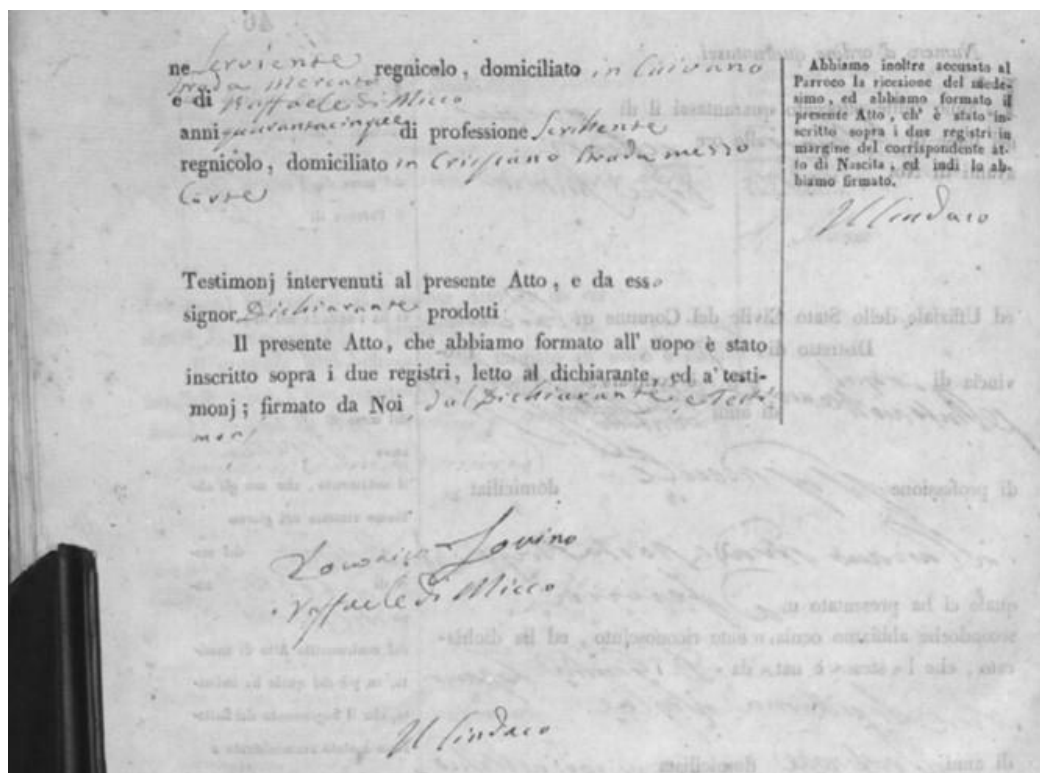 ne Serviente regnicolo, domiciliato in Caivano
strada Mercato
e di Raffaele di Micco
anni quarantacinque di professione Serviente
regnicolo, domiciliato in Crispano strada mezzo
Corte
Testimonj intervenuti al presente Atto, e da esso
signor Dichiarante prodotti
Il presente Atto, che abbiamo formato all' uopo è stato
inscritto sopra i due registri, letto al dichiarante, ed a' testi-
monj; firmato da Noi dal Dichiarante, e Testi
monj
Iovino
Raffaele di Micco
Il Sindaco
Abbiamo inoltre accusato al
Parroco la ricezione del mede-
simo, ed abbiamo formato il
presente Atto, ch' è stato in-
scritto sopra i due registri in
margine del corrispondente at-
to di Nascita, ed indi lo ab-
biamo firmato.
Il Sindaco